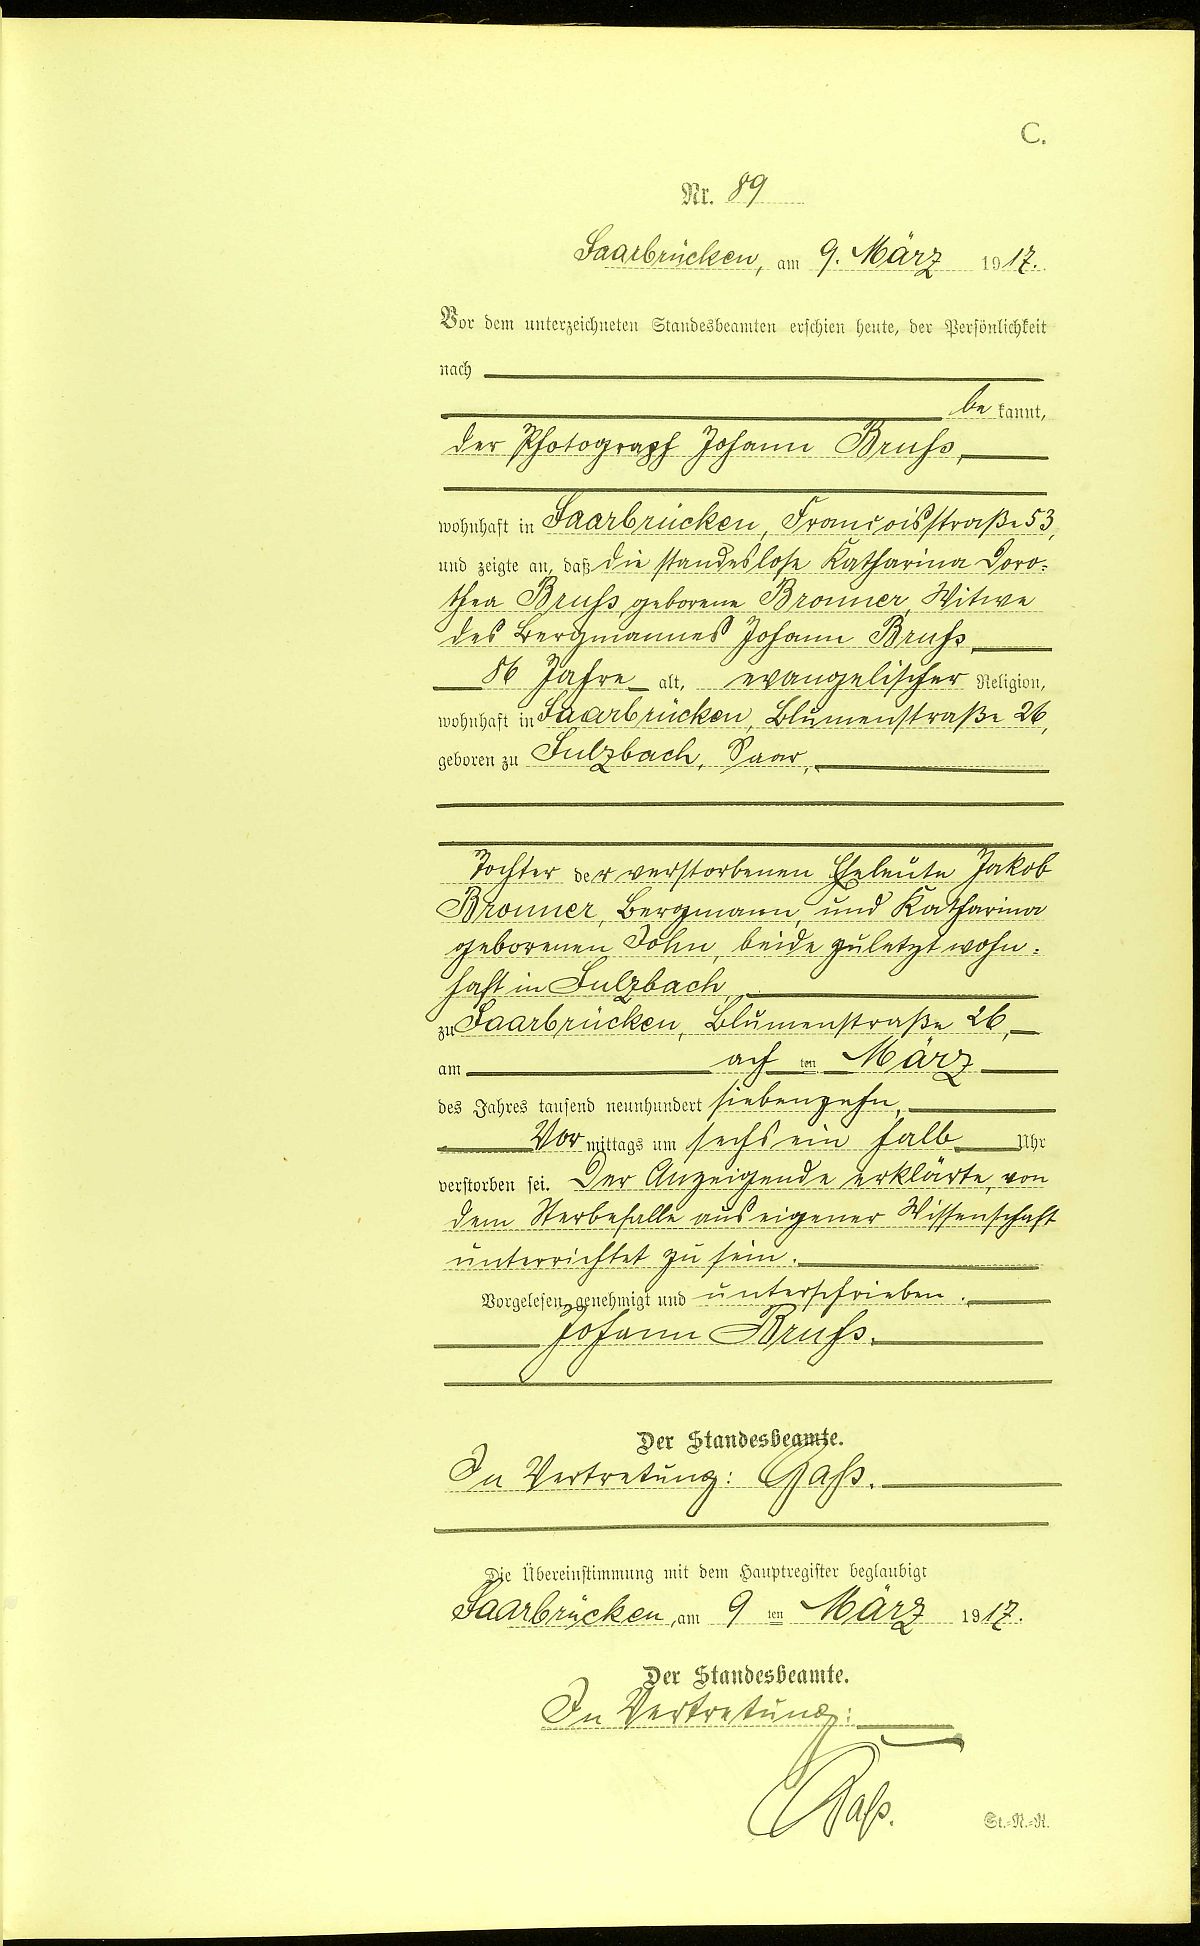 C.
Nr. 89
Saarbrücken, am 9. März 1917.
Vor dem unterzeichneten Standesbeamten erschien heute, der Persönlichkeit
nach
be kannt,
der Photograph Johann Bruß,
wohnhaft in Saarbrücken, Francoisstraße 53,
und zeigte an, daß die standeslose Katharina Doro-
thea Bruß geborene Bronner, Witwe
des Bergmannes Johann Bruß,
86 Jahre alt, evangelischer Religion,
wohnhaft in Saarbrücken, Blumenstraße 26,
geboren zu Sulzbach, Saar,
Tochter der verstorbenen Eheleute Jakob
Bronner, Bergmann, und Katharina
geborenen John, beide zuletzt wohn-
haft in Sulzbach,
zu Saarbrücken, Blumenstraße 26,
am ach ten März
des Jahres tausend neunhundert siebenzehn,
Vor mittags um sechs ein halb Uhr
verstorben sei. Der Anzeigende erklärte, von
dem Sterbefalle aus eigener Wissenschaft
unterrichtet zu sein.
Vorgelesen, genehmigt und unterschrieben.
Johann Bruß.
Der Standesbeamte.
In Vertretung:
Die Übereinstimmung mit dem Hauptregister beglaubigt
Saarbrücken, am 9 ten März 1917.
Der Standesbeamte.
In Vertretung:
St.-N.-R.